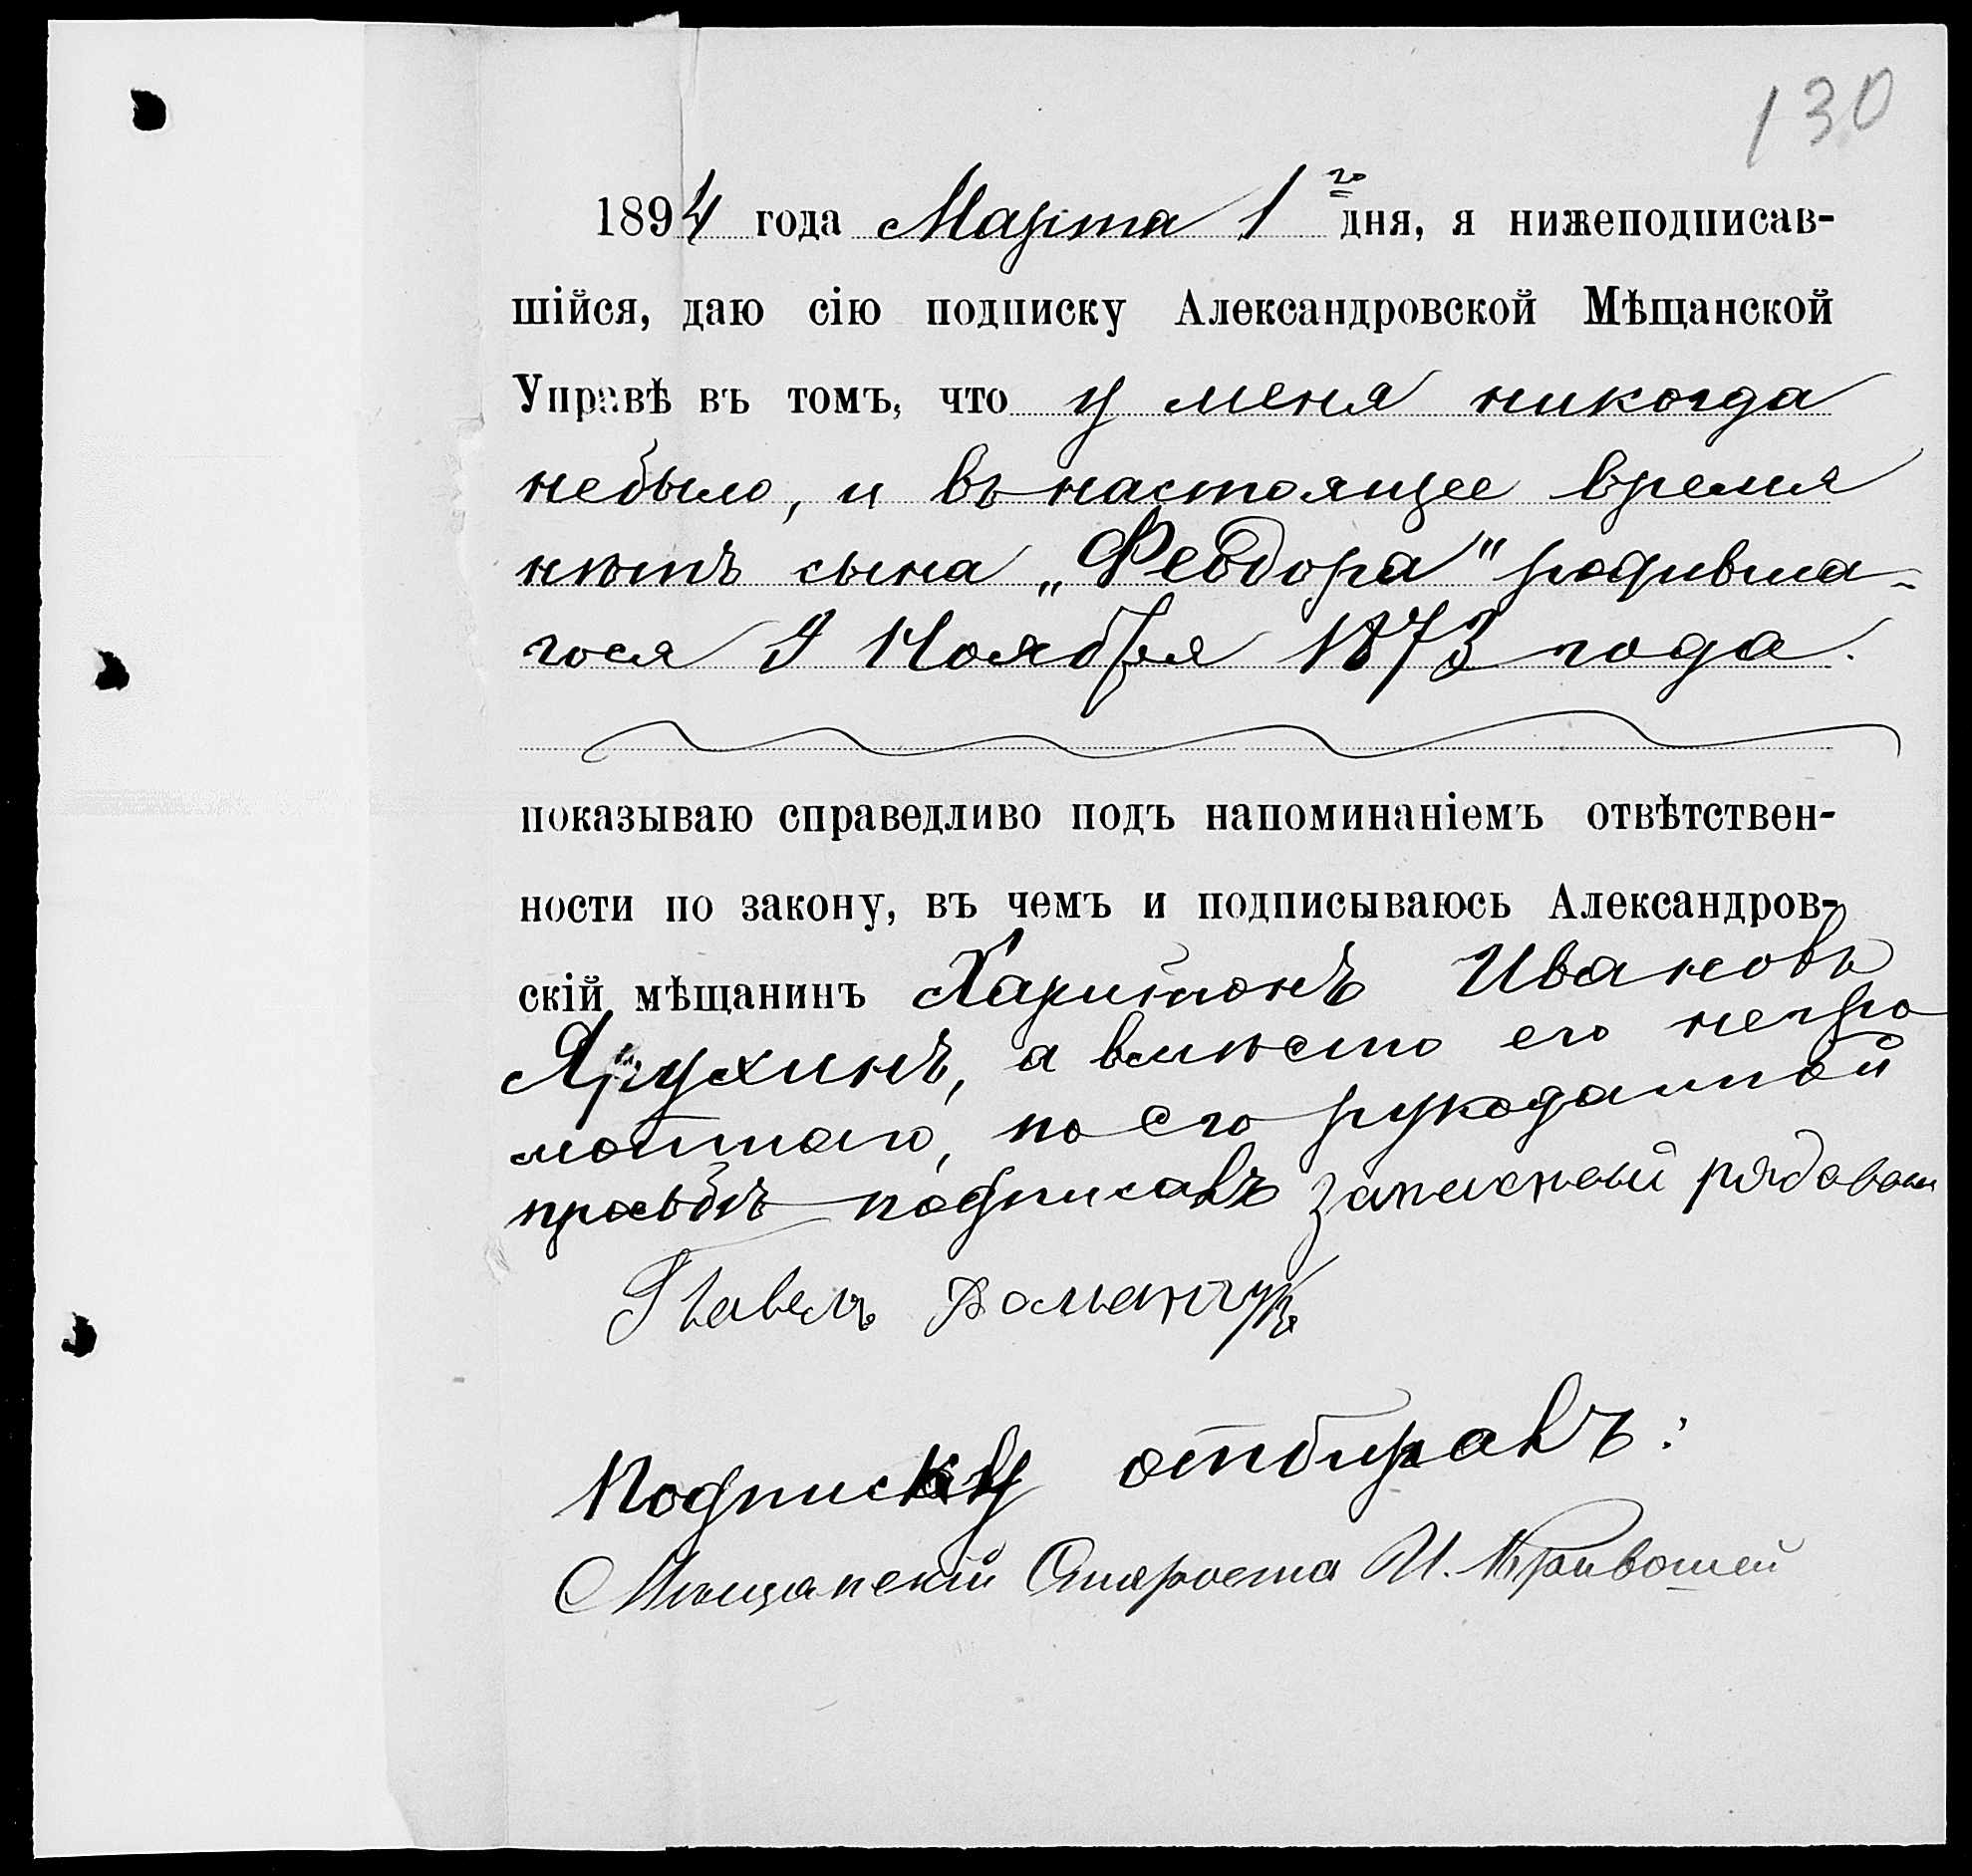 130
1894 года Марта 1го дня, я нижеподписав-
шійся, даю сію подписку Александровской Мѣщанской
Управѣ въ томъ, что у меня никогда
небыло, и въ настоящее время
нѣтъ сына „Феодора" родивша-
гося 9 Ноября 1873 года.
показываю справедливо подъ напоминаніемъ отвѣтствен-
ности по закону, въ чемъ и подписываюсь Александров-
скій мѣщанинъ Харитонъ Ивановъ
Ярухинъ, а вмѣсто его негра
мотнаго, по его рукоданной
прозьбѣ подписавъ запасный рядовой
Павелъ
Подписку отбиравъ:
Мѣщанскій Староста И. Кривошей